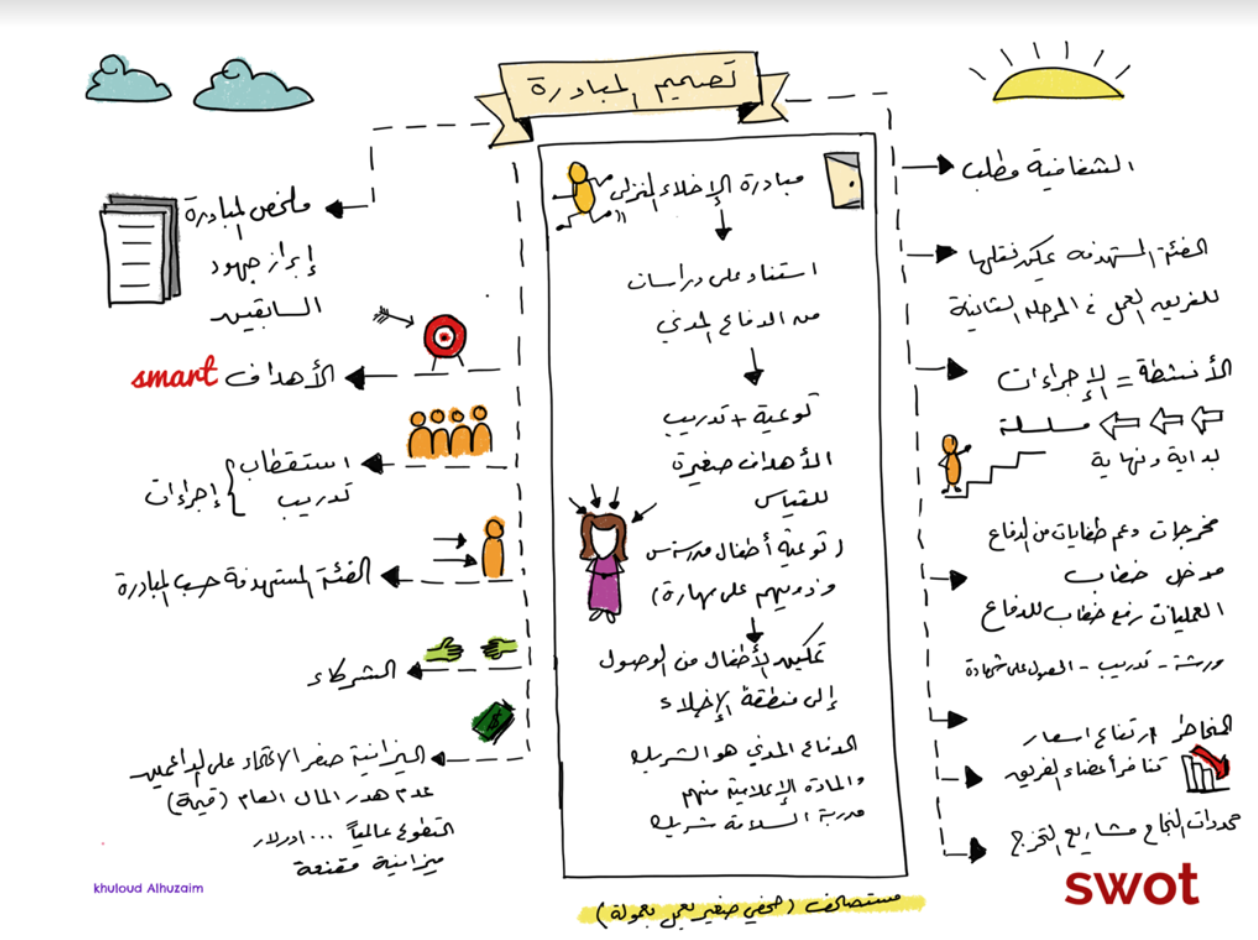 تصميم المبادرة
الشفافية مطلب
الفئة المستهدفه يمكن نقلها
للفريق العمل في المرحله الثانية
الأنشطة = الإجراءات
سلسلة
بداية ونهاية
مخرجات دعم طفايات من الدفاع
مدخل خطاب
العمليات رفع خطاب للدفاع
ورشة - تدريب - الحصول على شهادة
المخاطر ارتفاع اسعار
تنافر أعضاء الفريق
محددات النجاح مشاريع التخرج
swot
مبادرة الإخلاء المنزلي
استناد على دراسات
من الدفاع المدني
توعية + تدريب
الأهداف صغيرة
للقياس
(توعية أطفال مدرسة س
وذويهم على مهارة)
تمكين الأطفال من الوصول
إلى منطقة الإخلاء
الدفاع المدني هو الشريك
والمادة الإعلامية منهم
مدربة السلامة شريك
مستصحف (صحفي صغير يعمل بعمولة)
ملخص المبادرة
إبراز جهود
السابقين
الأهداف smart
استقطاب
تدريب
إجراءات
الفئة المستهدفة حسب المبادرة
الشركاء
الميزانية صفر الاعتماد على الداعمين
عدم هدر المال العام (قيمة)
التطوع عالمياً دولار
ميزانية مقنعة
khuloud Alhuzaim